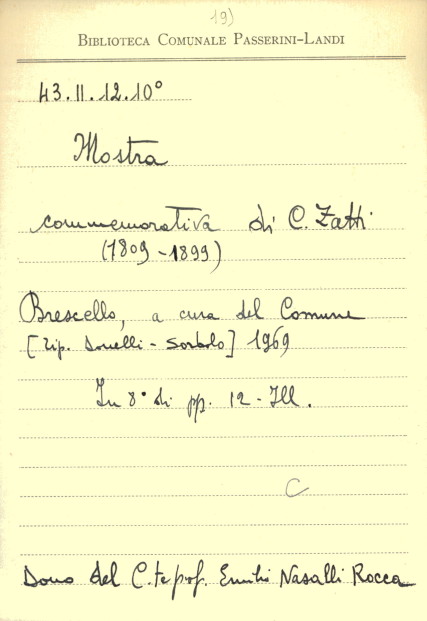 19)
BIBLIOTECA COMUNALE PASSERINI-LANDI
43.II.12.10°
Mostra
commemorativa di C. Zatti
(1809-1899)
Brescello, a cura del Comune
[Tip. Donelli - Sorbolo] 1969
In 8° di pp. 12 - Ill.
C
Dono del C.te prof. Emilio Nasalli Rocca